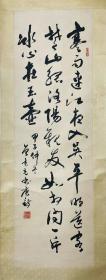 寒雨連江夜入吴平明送客
楚山孤洛陽親友如相問一片
冰心在玉壺
甲子